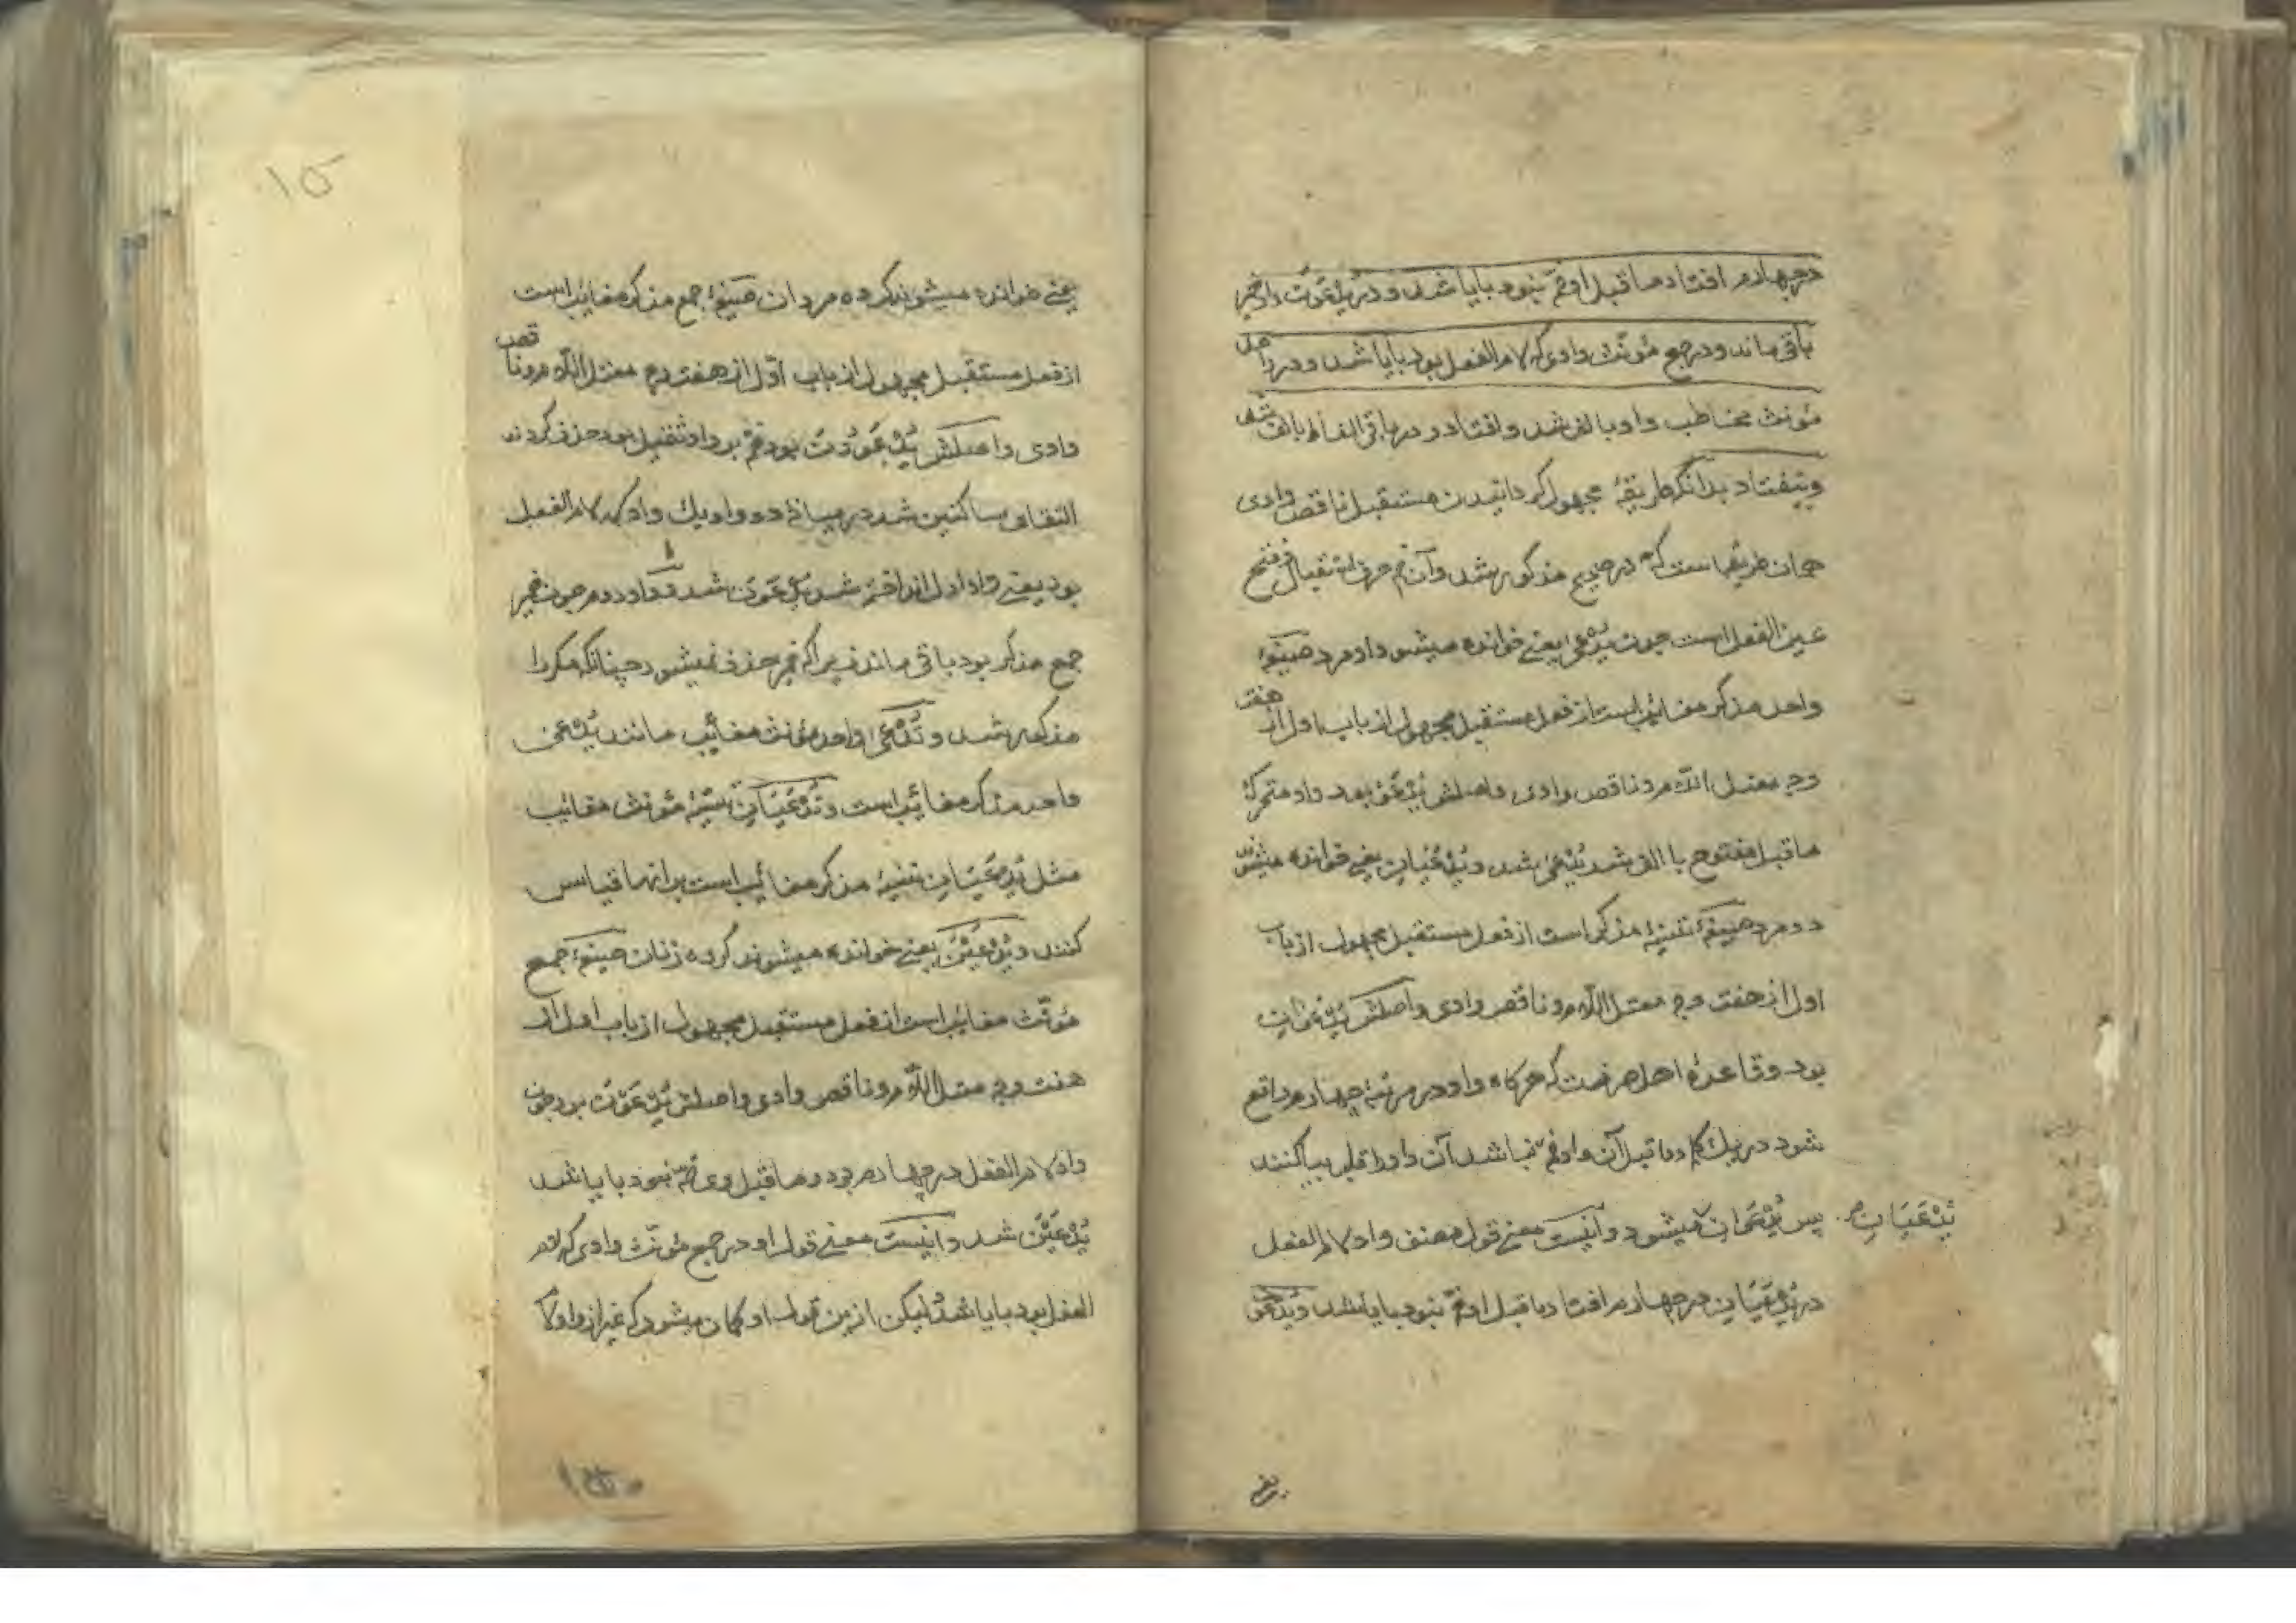 در چهارم افتاد ما قبل او ضم نبود با یا شد و در یدعون واو ضمیر
باقی ماند و در جمع مؤنث واوی که لام الفعل بود با یا شد و در واحد
مؤنث مخاطب واو با الف شد و افتاد و در باقی الفاظ با الف شد
و نیفتاد بدانکه طریقهٔ مجهول کردانیدن مستقبل ناقص وادی
همان طریقه است که در صحیح مذکور شد و آن ضم حرف استقبال و فتح
عین الفعل است چون یُدْعیٰ یعنی خوانده میشود او مرد صیغهٔ
واحد مذکر مغائب است از فعل مستقبل مجهول از باب اول از هفت
وجه معتل اللام و ناقص وادی و اصلش یُدْعَوُ بود واو متحرک
ما قبل مفتوح با الف شد یُدْعیٰ شد و یُدْعَیَانِ یعنی خوانده میشوند
دو مرد صیغهٔ تثنیهٔ مذکر است از فعل مستقبل مجهول از باب
اول از هفت وجه معتل اللام و ناقص وادی و اصلش یُدْعَوَانِ
بود و قاعدهٔ اهل صرفست که هرکاه واو در مرتبهٔ چهارم واقع
شود در یك کلمه و ما قبل آن واو ضم نباشد آن واو را قلب بیا کنند
پس یُدْعَوَانِ میشود و اینست معنی قول مصنف واو لام الفعل
یُدْعَیَانِ
در یُدْعَیَانِ در چهارم افتاد و ما قبل او ضم نبود با یا شد و یُدْعَوْنَ
یعنی
۱۵
یعنی خوانده میشوند کروه مردان صیغهٔ جمع مذکر مغائب است
از فعل مستقبل مجهول از باب اوّل از هفت وجه معتل اللام و ناقص
وادی و اصلش یُدْعَوُونَ بود ضم بر واو ثقیل بود حذف کردند
التقای ساکنین شد در میانهٔ دو واو یك واو که لام الفعل
بود یعنی واو اول انداخته شد یُدْعَوْنَ شد و واو دوم چون ضمیر
جمع مذکر بود باقی ماند زیرا که ضمیر حذف نمیشود چنانکه مکررا
مذکور شد و تُدْعیٰ واحد مؤنث مغائب مانند یُدْعیٰ
واحد مذکر مغائب است و تُدْعَیَانِ تثنیهٔ مؤنث مغائب
مثل یُدْعَیَانِ تثنیهٔ مذکر مغائب است بر انها قیاس
کنند و یُدْعَیْنَ یعنی خوانده میشوند کروه زنان صیغهٔ جمع
مؤنّث مغائب است از فعل مستقبل مجهول از باب اول از
هفت وجه معتل اللام و ناقص وادی و اصلش یُدْعَوْنَ بود چون
واو لام الفعل در چهارم بود و ما قبل وی ضمّ نبود با یا شد
یُدْعَیْنَ شد و اینست معنی قول او در جمع مؤنّث واوی که لام
الفعل بود با یا شد لیکن ازین قول او کمان میشود که غیر از واو لام